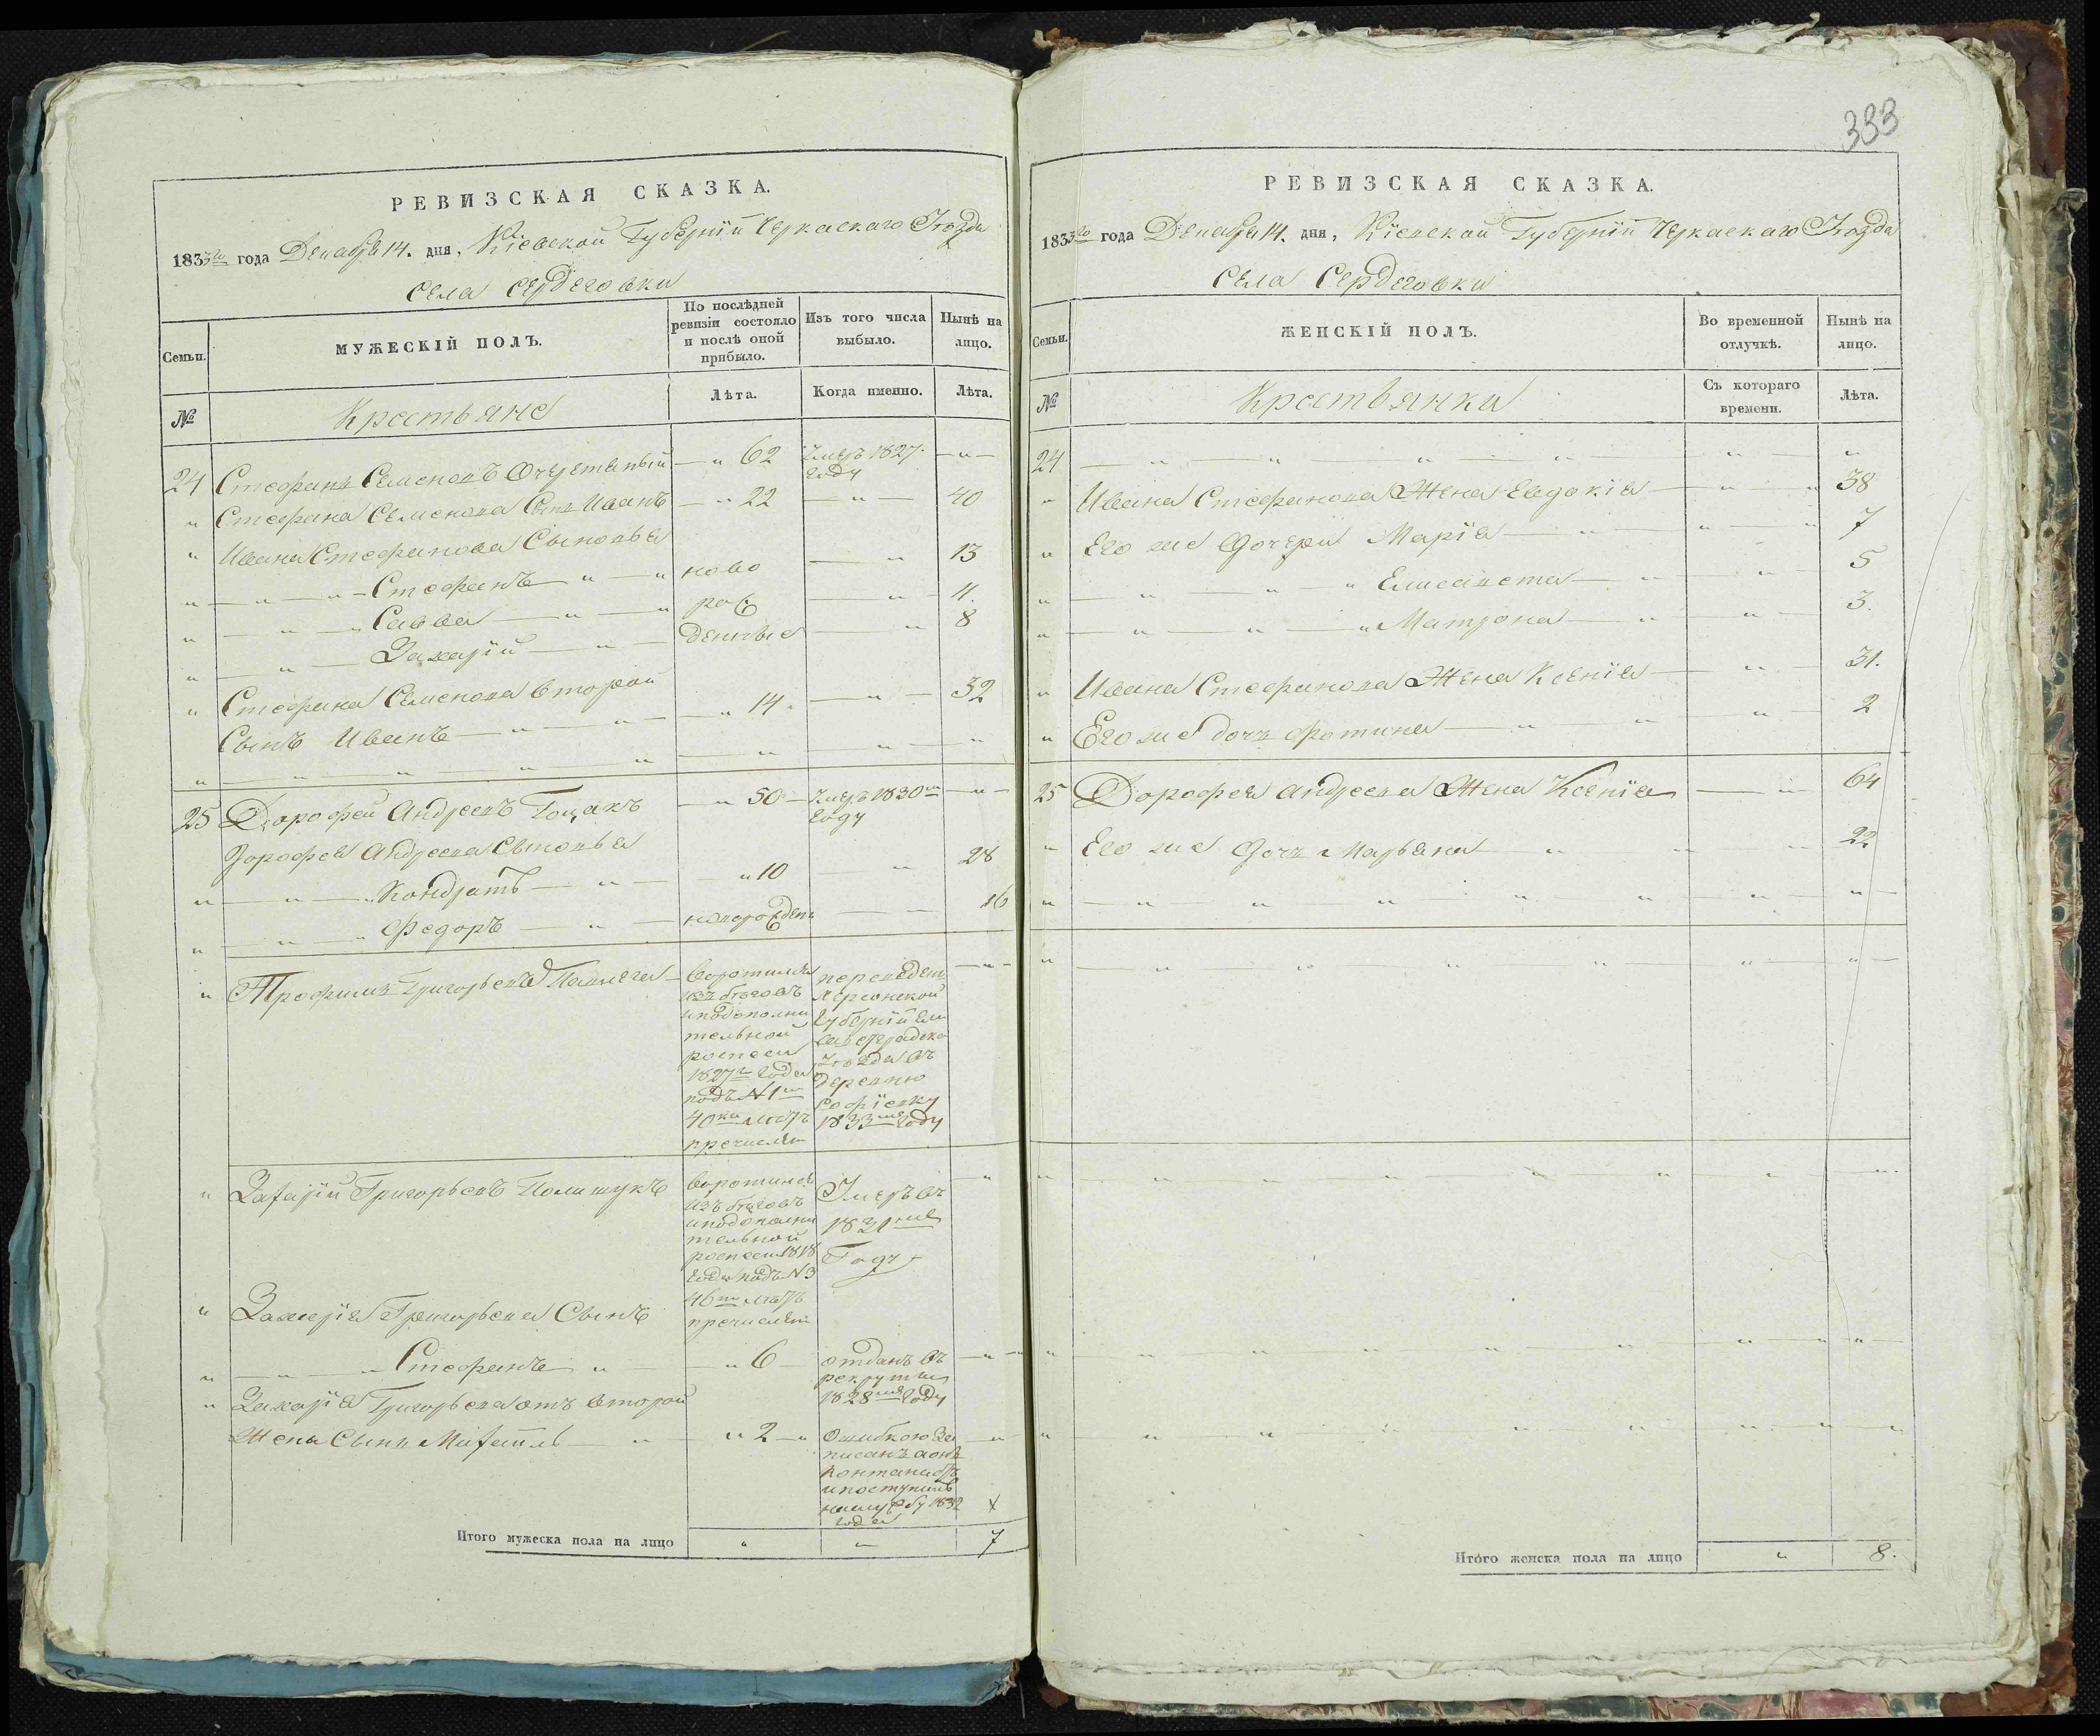 РЕВИЗСКАЯ СКАЗКА.
1833го года Декабря 14. дня, Кіевской Губерніи Черкаскаго Уѣзда
села Сердеговки
Семьи.
МУЖЕСКІЙ ПОЛЪ.
По послѣдней ревизіи состояло и послѣ оной прибыло.
Изъ того числа выбыло.
Нынѣ на лицо.
№
Крестьяне
Лѣта.
Когда именно.
Лѣта.
24 Стефанъ Семеновъ Очеретяный — " 62 Умеръ 1827. году — " —
" Стефана Семенова Сынъ Иванъ — " 22 — " — 40
" Ивана Стефанова Сыновья
" — " — " — Стефанъ — " — " ново — " 13
" — " — " Савва — " — " рож — " — 11.
" — " — Захарій — " — денные — " 8
" Стефана Семенова второй
Сынъ Иванъ — " — " — " 14. — " — 32
" — " — " — " — " — " — " — "
25 Дорофей Андреевъ Гоцакъ — " 50 — Умеръ 1830го году — " —
Дорофея Андреева Сыновья
" — " — " Кондратъ — " — " 10 — " 28
" — " — " Федоръ — " — новорожденъ — " 16
" Трофимъ Григорьевъ
воротился изъ бѣговъ и по дополнительной росписи 1827го года подъ N 1м 40ка лѣтъ причисленъ
переведенъ Херсонской Губерніи Елисаветградска Уѣзда въ деревню Софіевку 1833мъ году
— " —
" Захарій Григорьевъ Полищукъ
воротился изъ бѣговъ и по дополнительной росписи 1818 года подъ N 3 46ти лѣтъ причисленъ
Умеръ въ 1831мъ Году
— "
" Захарія Григорьева Сынъ
" — " — " Стефанъ — " — — " 6 — отданъ въ рекруты 1828мъ году — " — "
" Захарія Григорьева отъ второй
Жены Сынъ Михаилъ — " — " 2 — " Ошибкою записанъ а онъ
и поступилъ 1832 года
— " —
х
Итого мужеска пола на лицо " " 7
333
РЕВИЗСКАЯ СКАЗКА.
1833го года Декабря 14. дня, Кіевской Губерніи Черкаскаго Уѣзда
села Сердеговки
Семьи.
ЖЕНСКІЙ ПОЛЪ.
Во временной отлучкѣ.
Нынѣ на лицо.
№
Крестьянки
Съ котораго времени.
Лѣта.
24 — " — " — " — " — " — "
" Ивана Стефанова Жена Евдокія — " — " 38
" Его же дочери Марія — " — " — " 7
" — " — " — " Елисавета — " — " — 5
" — " — " — " Матрона — " — " — 3.
" Ивана Стефанова Жена Ксенія — " — 31.
" Его же дочь Фотина — " — " — " — 2
25 Дорофея Андреева Жена Ксенія — " — 64
" Его же дочь Марьяна " " " — 22
" — " — " — " — " — " — " — " —
" — " — " — " — " — " — " —
" — " — " — " — " — " — " — " —
" — " — " — " — " — " — " — " —
" — " — " — " — " — " — " — "
Итого женска пола на лицо " 8.